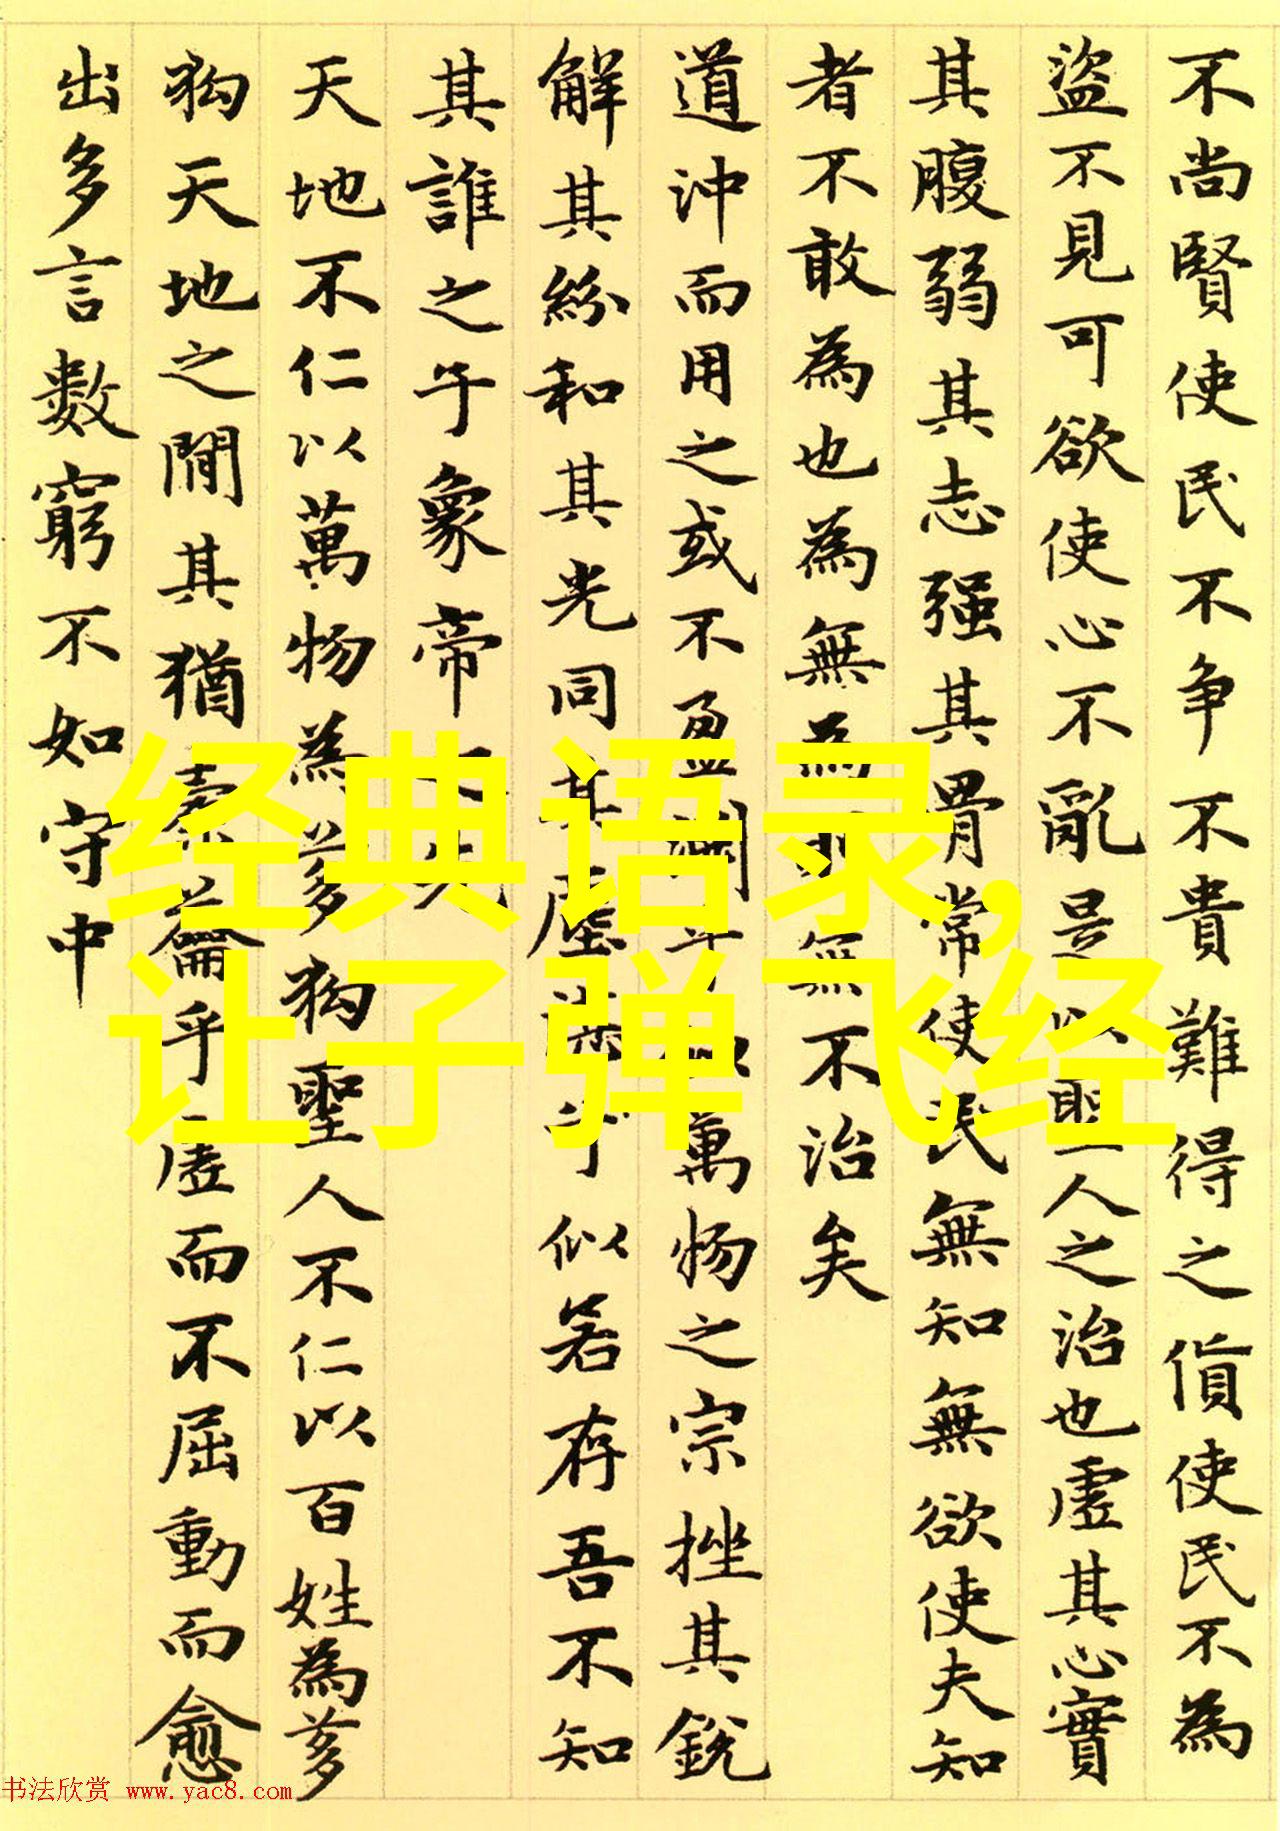 不尚賢使民不争不貴難得之貨使民不為
盜不見可欲使心不亂是以聖人之治也虛其心實
其腹弱其志强其骨常使民無知無欲使夫知
者不敢為也為無為則無不治矣
道沖而用之或不盈淵乎似萬物之宗挫其銳
解其紛和其光同其塵湛乎似若存吾不知
其誰之子象帝之先
天地不仁以萬物為芻狗聖人不仁以百姓為芻
狗天地之間其猶橐籥乎虛而不屈動而愈
出多言數窮不如守中
经典语录,
让子弹飞经
书法欣赏 www.yac8.com